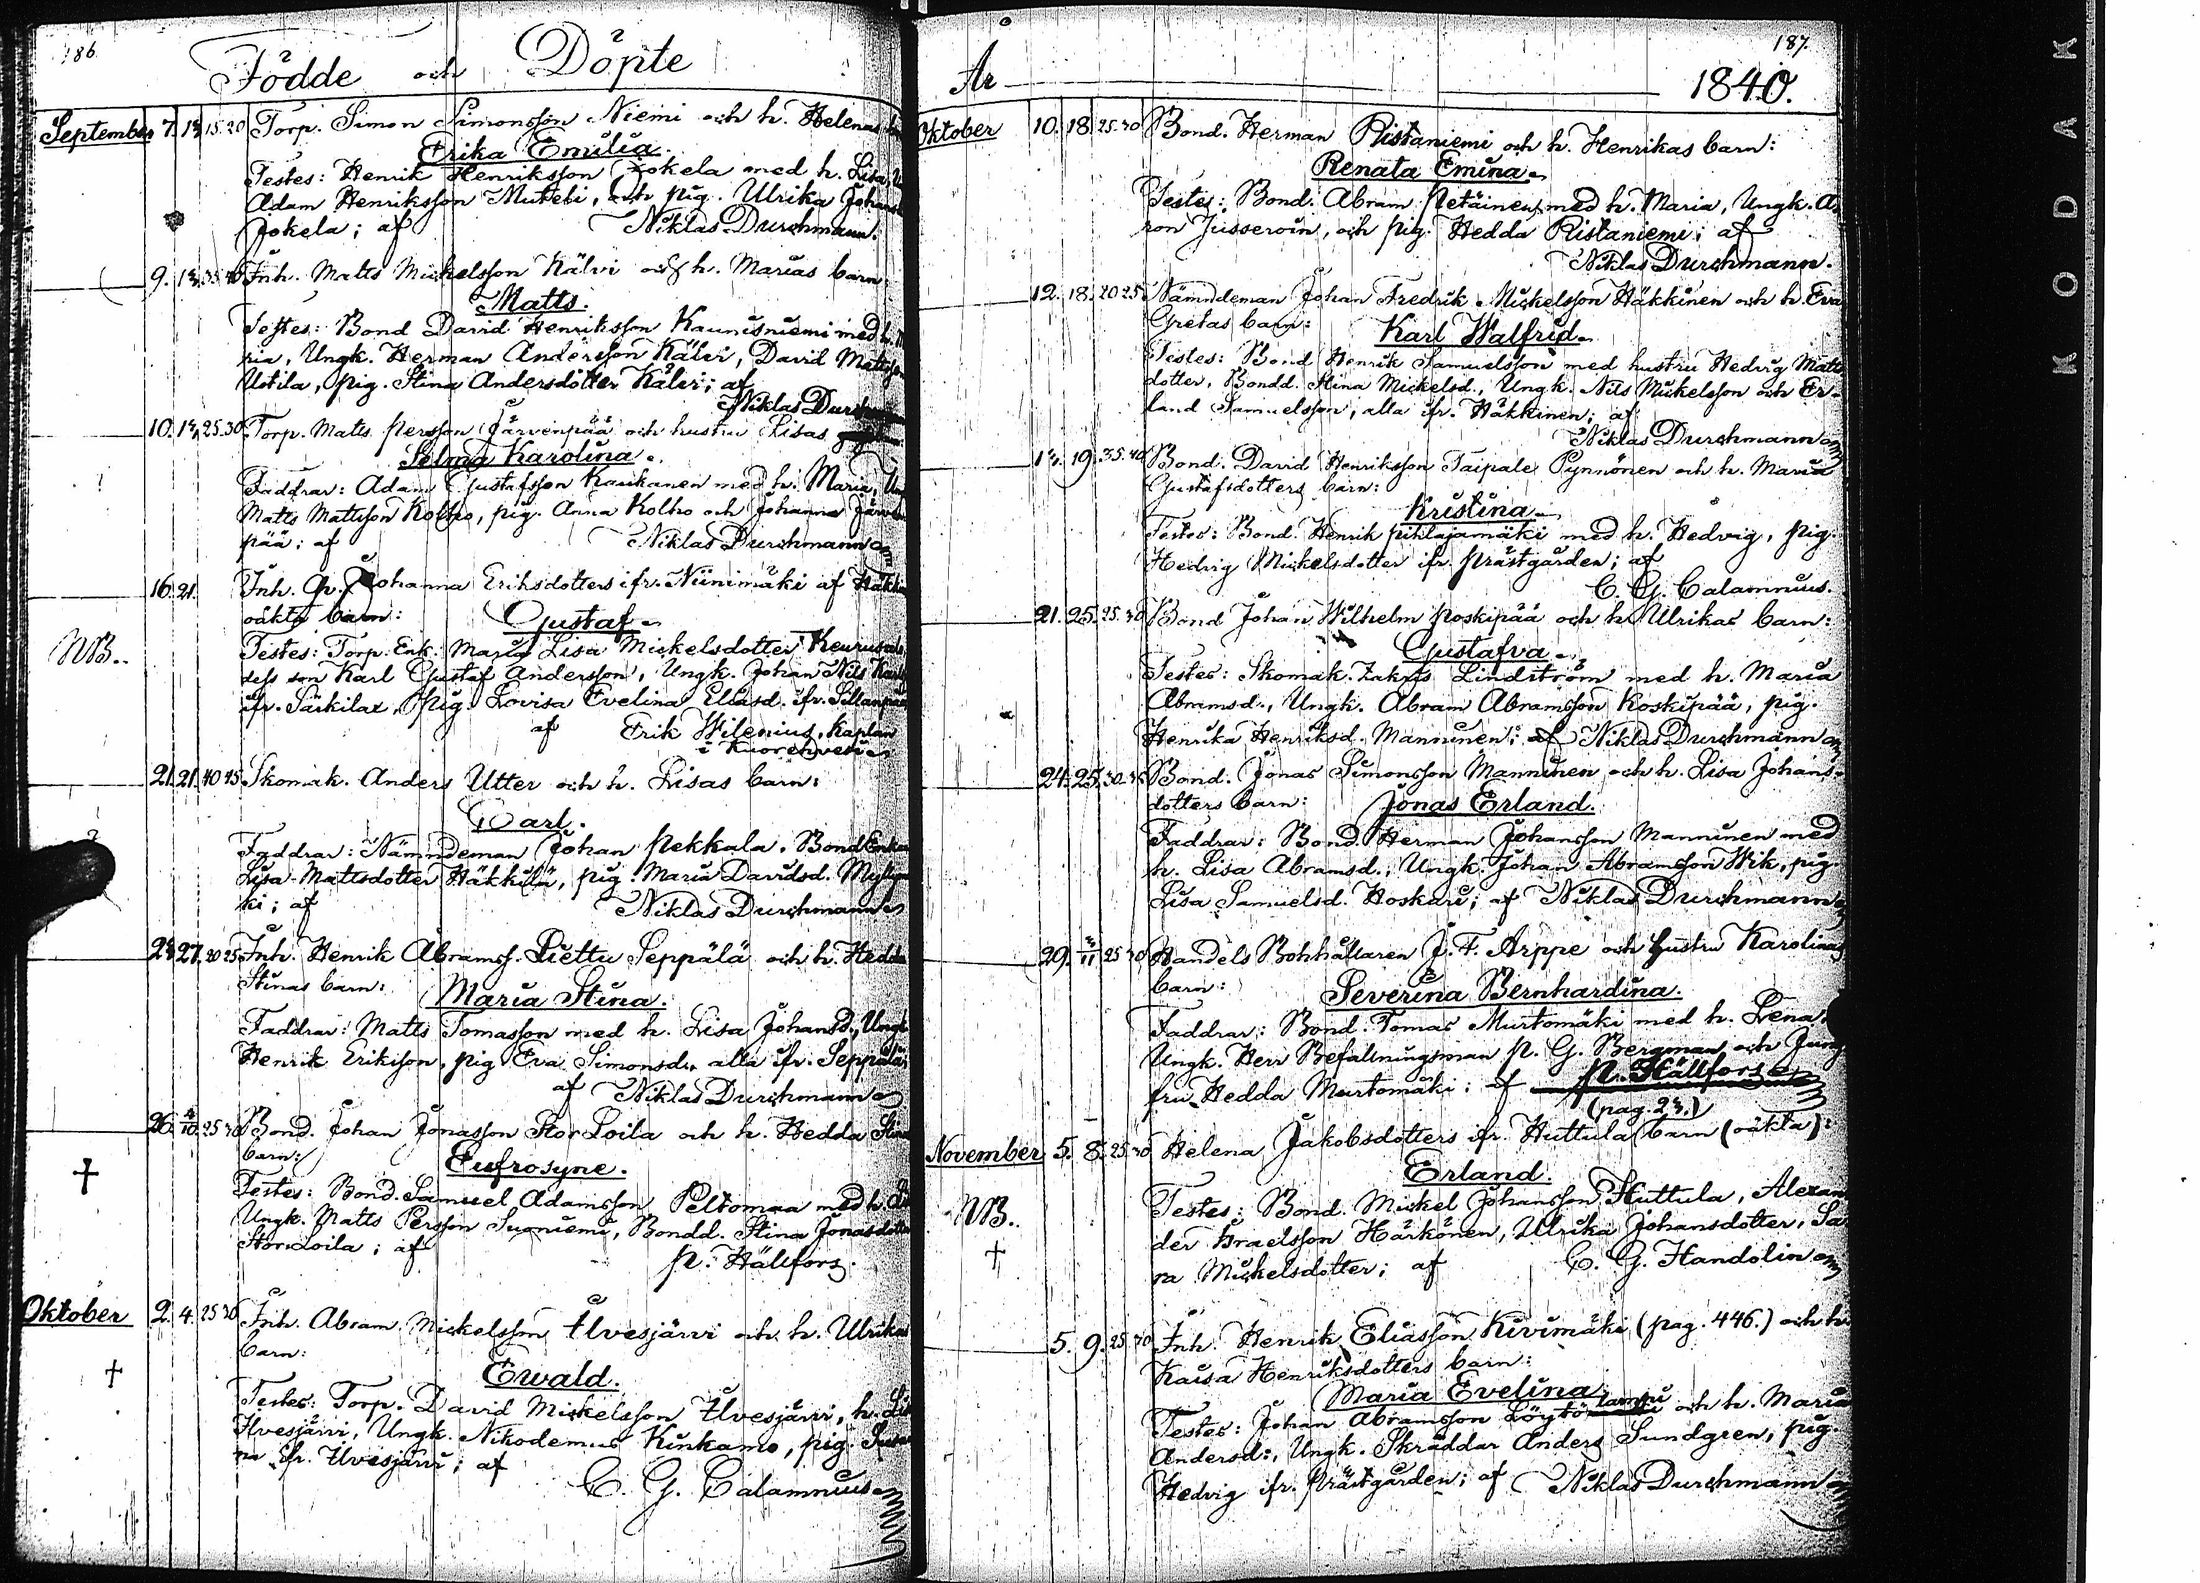 186.
Födde och Döpte
September 7. 13. 15.20 Torp. Simon Simonsson Niemi och h. Helenas
Erika Emilia.
Testes: Henrik Henriksson Jokela med h. Lisa,
Adam Henriksson Mutebi, och pig. Ulrika
Jokela; af Niklas Durchmann.
9. 13. Inh. Matts Mickelsson Kälvi och h. Marias barn
Matts.
Testes: Bond David Henriksson Kaunisniemi med
ria, Ungk. Herman Andersson Kälvi, David
Uotila, pig. Stina Andersdotter Kälvi; af
Niklas
10. 25.30 Torp. Matts Persson Järvenpää och hustru Lisas
Selma Karolina.
Faddrar: Adam Gustafsson Kaukanen med h. Maria,
Matts Mattsson Kolho, pig. Anna Kolho och Johanna
pää; af Niklas Durchmann
16. 21. Inh. Johanna Eriksdotters ifr. Niinimäki af
oäkta barn:
Gustaf
NB. Testes: Torp. Enk. Maria Lisa Mickelsdotter
dess son Karl Gustaf Andersson, Ungk. Johan Nils
ifr. Särkilax, pig. Lovisa Evelina Eliasd. ifr.
af Erik Wilenius, Kaplan
i Kuorehvesi
21. 21. 40 45 Skomak. Anders Utter och h. Lisas barn:
Carl.
Faddrar: Nämndeman Johan Pekkala, Bond Enkan
Lisa Mattsdotter Häkkilä, pig. Maria Davidsd.
ki; af Niklas Durchmann
23 27. 20 25 Inh. Henrik Abramss. Liettu Seppälä och h. Hedda
Stinas barn: Maria Stina.
Faddrar: Matts Tomasson med h. Lisa Johansd.,
Henrik Eriksson, pig Eva Simonsd., alla ifr. Seppälä;
af Niklas Durchmann
26. 4/10. 25 30 Bond. Johan Jonasson Stor Loila och h. Hedda
barn:
Eufrosyne.
† Testes: Bond. Samuel Adamsson Peltomaa med h.
Ungk. Matts Persson Suoniemi, Bondd. Stina
Stor Loila; af P. Hällfors.
Oktober 2. 4. 25 30 Inh. Abram Mickelsson Ilvesjärvi och h. Ulrikas
barn:
Ewald.
† Testes: Torp. David Mickelsson Ilvesjärvi, h.
Ilvesjärvi, Ungk. Nikodemus Kinkamo, pig.
na ifr. Ilvesjärvi; af
C. G. Calamnius
187.
År 1840.
Oktober 10. 18. 25.30 Bond. Herman Ristaniemi och h. Henrikas barn:
Renata Emina
Testes: Bond. Abram Petäinen med h. Maria, Ungk. A
ron Jusseroin, och pig. Hedda Ristaniemi; af
Niklas Durchmann.
12. 18. 20 25 Nämndeman Johan Fredrik Mickelsson Häkkinen och h. Eva
Gretas barn: Karl Walfrid
Testes: Bond Henrik Samuelsson med hustru Hedvig Matts
dotter, Bondd. Stina Mickelsd., Ungk. Nils Mickelsson och Er-
land Samuelsson, alla ifr. Häkkinen; af
Niklas Durchmann
19. 35.40 Bond. David Henriksson Taipale Pynnönen och h. Maria
Gustafsdotters barn:
Kristina
Testes: Bond. Henrik Pihlajamäki med h. Hedvig, pig.
Hedvig Mickelsdotter ifr. Prästgården; af
C. G. Calamnius.
21. 25. 25.30 Bond Johan Wilhelm Koskipää och h. Ulrikas barn:
Gustafva
Testes: Skomak. Zakris Lindström med h. Maria
Abramsd., Ungk. Abram Abramsson Koskipää, pig.
Henrika Henriksd. Manninen; af Niklas Durchmann
24. 25. 30. 35 Bond. Jonas Simonsson Manninen och h. Lisa Johans-
dotters barn: Jonas Erland.
Faddrar: Bond. Herman Johansson Manninen med
h. Lisa Abramsd., Ungk. Johan Abramsson Wik, pig.
Lisa Samuelsd. Koskari; af Niklas Durchmann
29. 25 30 Handels Bokhållaren J. F. Arppe och hustru Karolinas
barn: Severina Bernhardina.
Faddrar: Bond. Tomas Murtomäki med h. Lena,
Ungk. Herr Befallningsman P. G. Bergman och Jung
fru Hedda Murtomäki; af P. Hällfors
(pag. 23.)
November 5. 8. 25 30 Helena Jakobsdotters ifr. Huttula barn (oäkta):
Erland.
NB. Testes: Bond. Mickel Johansson Huttula, Alexan
† der Israelsson Härkönen, Ulrika Johansdotter, Sa
ra Mickelsdotter; af C. G. Handolin
5. 9. 25 30 Inh. Henrik Eliasson Kivimäki (pag. 446.) och h.
Kaisa Henriksdotters barn:
Maria Evelina
Testes: Johan Abramsson Löytölampi och h. Maria
Andersd., Ungk. Skräddar Anders Sundgren, pig.
Hedvig ifr. Prästgården; af Niklas Durchmann
KODAK